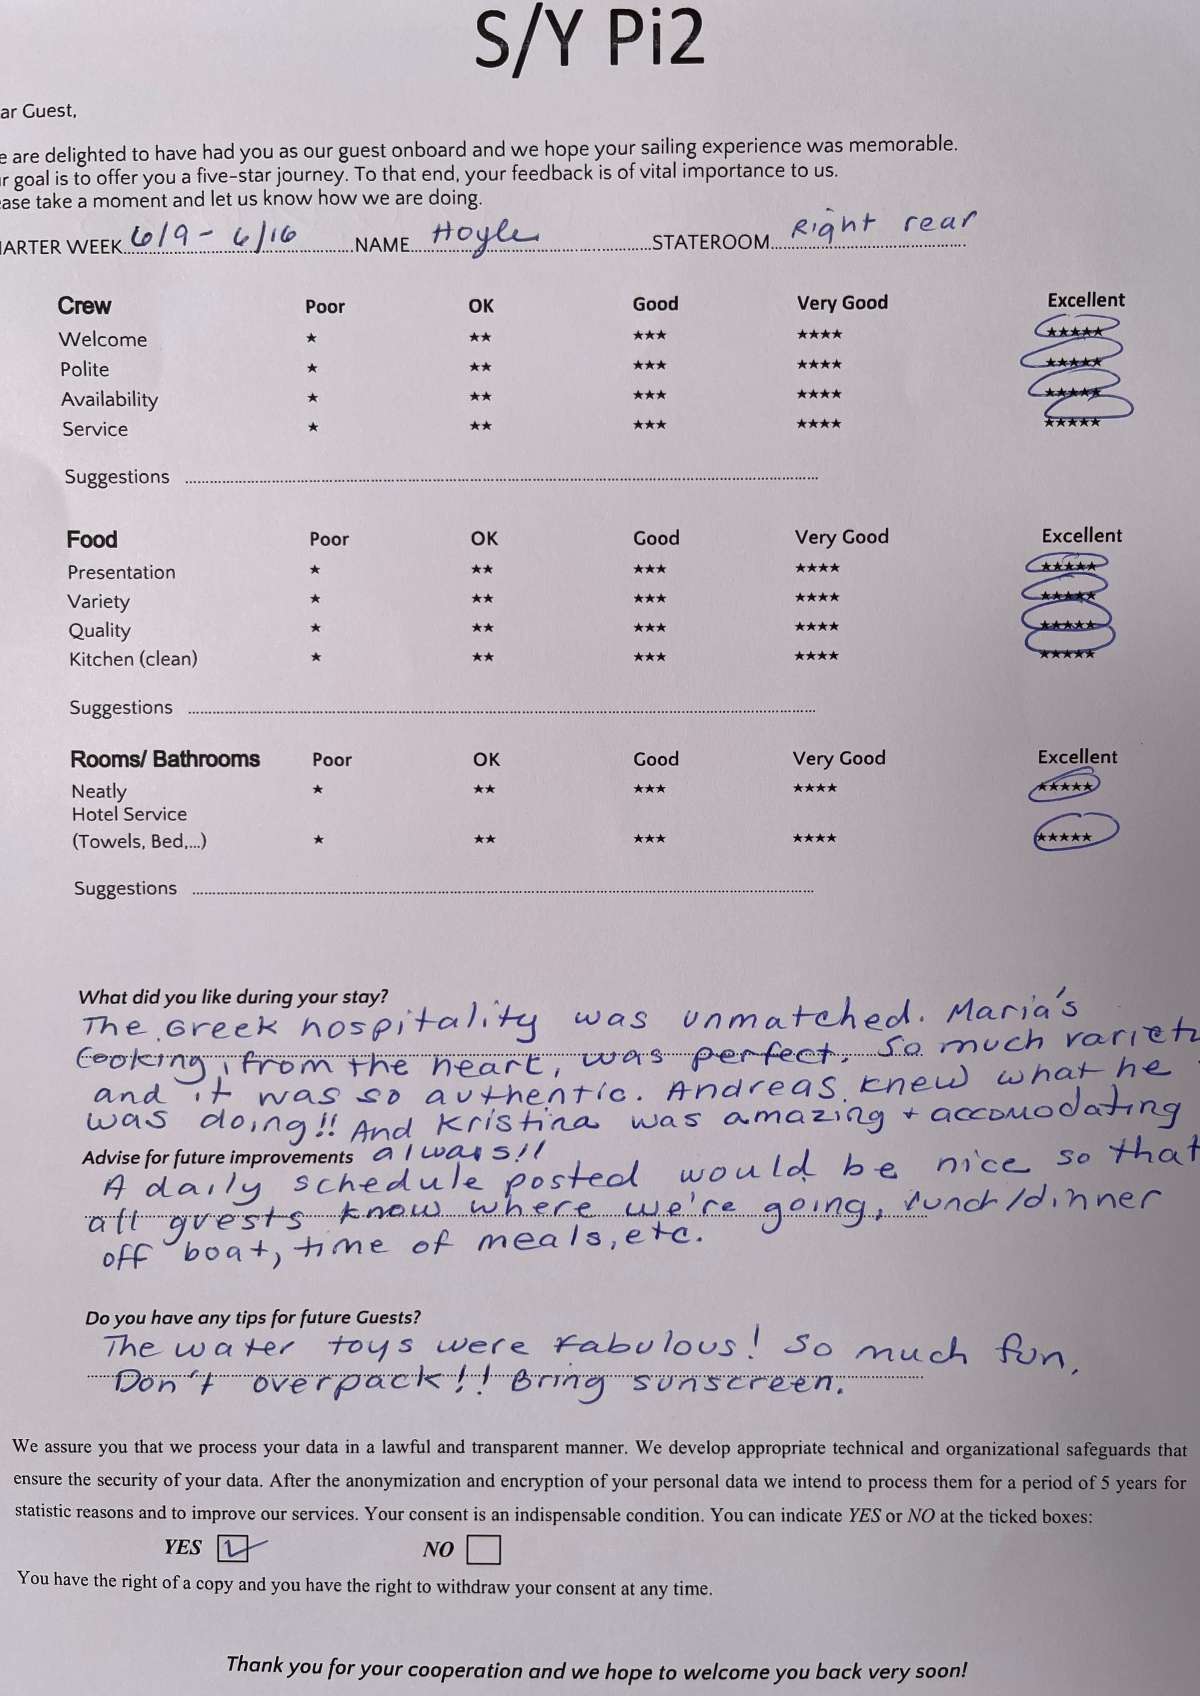 S/Y Pi2
ar Guest,
e are delighted to have had you as our guest onboard and we hope your sailing experience was memorable.
r goal is to offer you a five-star journey. To that end, your feedback is of vital importance to us.
ase take a moment and let us know how we are doing.
ARTER WEEK 6/9 - 6/16 NAME Hoyle STATEROOM Right rear
Crew Poor OK Good Very Good Excellent
Welcome ★ ★★ ★★★ ★★★★ ★★★★★
Polite ★ ★★ ★★★ ★★★★ ★★★★★
Availability ★ ★★ ★★★ ★★★★ ★★★★★
Service ★ ★★ ★★★ ★★★★ ★★★★★
Suggestions
Food Poor OK Good Very Good Excellent
Presentation ★ ★★ ★★★ ★★★★ ★★★★★
Variety ★ ★★ ★★★ ★★★★ ★★★★★
Quality ★ ★★ ★★★ ★★★★ ★★★★★
Kitchen (clean) ★ ★★ ★★★ ★★★★ ★★★★★
Suggestions
Rooms/ Bathrooms Poor OK Good Very Good Excellent
Neatly ★ ★★ ★★★ ★★★★ ★★★★★
Hotel Service
(Towels, Bed,...) ★ ★★ ★★★ ★★★★ ★★★★★
Suggestions
What did you like during your stay?
The Greek hospitality was unmatched. Maria's
Cooking, from the heart, was perfect. So much variet
and it was so authentic. Andreas knew what he
was doing!! And Kristina was amazing + accomodating
Advise for future improvements always!!
A daily schedule posted would be nice so that
all guests know where we're going, lunch/dinner
off boat, time of meals, etc.
Do you have any tips for future Guests?
The water toys were fabulous! So much fun.
Don't overpack!! Bring sunscreen.
We assure you that we process your data in a lawful and transparent manner. We develop appropriate technical and organizational safeguards that
ensure the security of your data. After the anonymization and encryption of your personal data we intend to process them for a period of 5 years for
statistic reasons and to improve our services. Your consent is an indispensable condition. You can indicate YES or NO at the ticked boxes:
YES NO
You have the right of a copy and you have the right to withdraw your consent at any time.
Thank you for your cooperation and we hope to welcome you back very soon!